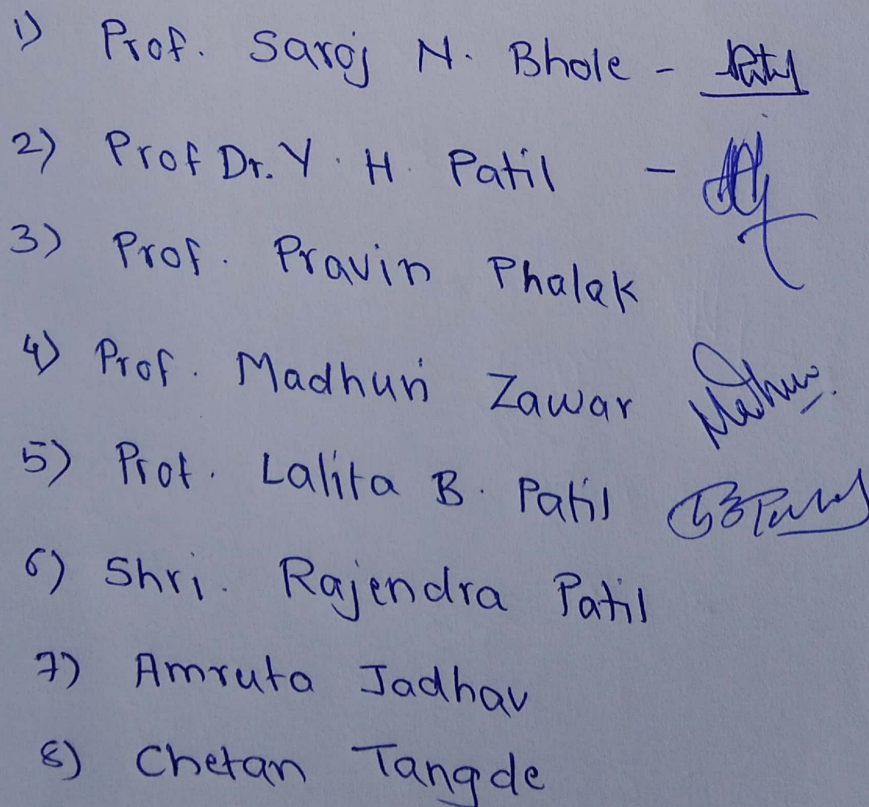 1) Prof. Saroj N. Bhole -
2) Prof Dr. Y. H. Patil -
3) Prof. Pravin Phalak
4) Prof. Madhuri Zawar
5) Prof. Lalita B. Patil
6) Shri. Rajendra Patil
7) Amruta Jadhav
8) Chetan Tangde